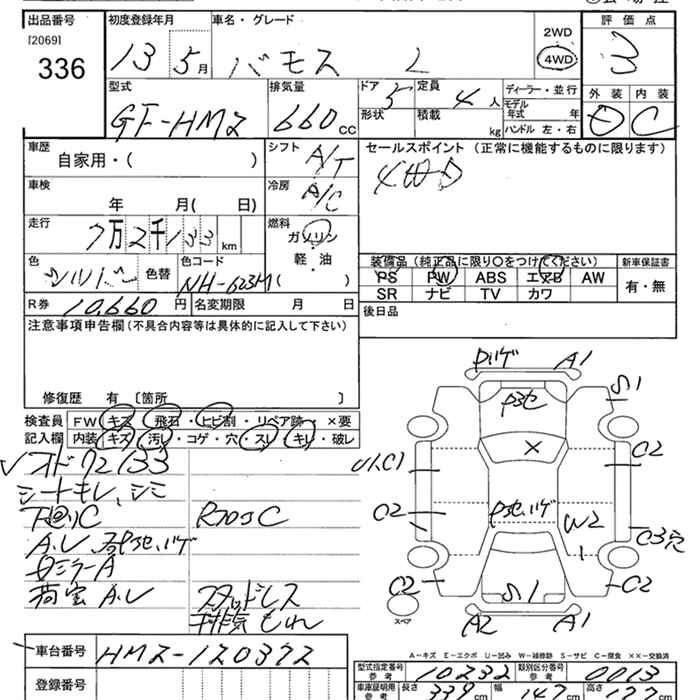 出品番号
[2069]
336
初度登録年月
13 5月
車名・グレード
バモス L
2WD
4WD
評価点
3
外装 内装
D C
型式
GF-HM2
排気量
660 cc
ドア 5
定員 4 人
形状
積載 kg
ディーラー・並行
モデル年式 年
ハンドル 左・右
車歴
自家用・( )
シフト A/T
セールスポイント (正常に機能するものに限ります)
4WD
車検
年 月( 日)
冷房 A/C
走行
7万2千133 km
燃料
ガソリン
軽・油
( )
色
シルバー
色替
色コード
NH-623M
装備品 (純正品に限り○をつけてください)
新車保証書
PS PW ABS エアB AW
SR ナビ TV カワ
有・無
R券 10,660 円
名変期限 月 日
後日品
注意事項申告欄 (不具合内容等は具体的に記入して下さい)
修復歴 有 〔箇所 〕
検査員記入欄
FW キズ・飛石・ヒビ割・リペア跡・×要
内装 キズ・汚レ・コゲ・穴・スレ・キレ・破レ
オド72133
シートモレ、シミ
下回りC
RフロアC
スタッドレス
排気もれ
車台番号 HM2-120372
登録番号
A1
S1
U1,C1
C2
C2
×
W2
C3穴
C2
S1
C2
A2
A1
スペア
A-キズ E-エクボ U-凹み W-補修跡 S-サビ C-腐食 ××-交換済
型式指定番号 参考 10232
類別区分番号 参考 0013
車庫証明用 参考
長さ 339 cm
幅 147 cm
高さ cm